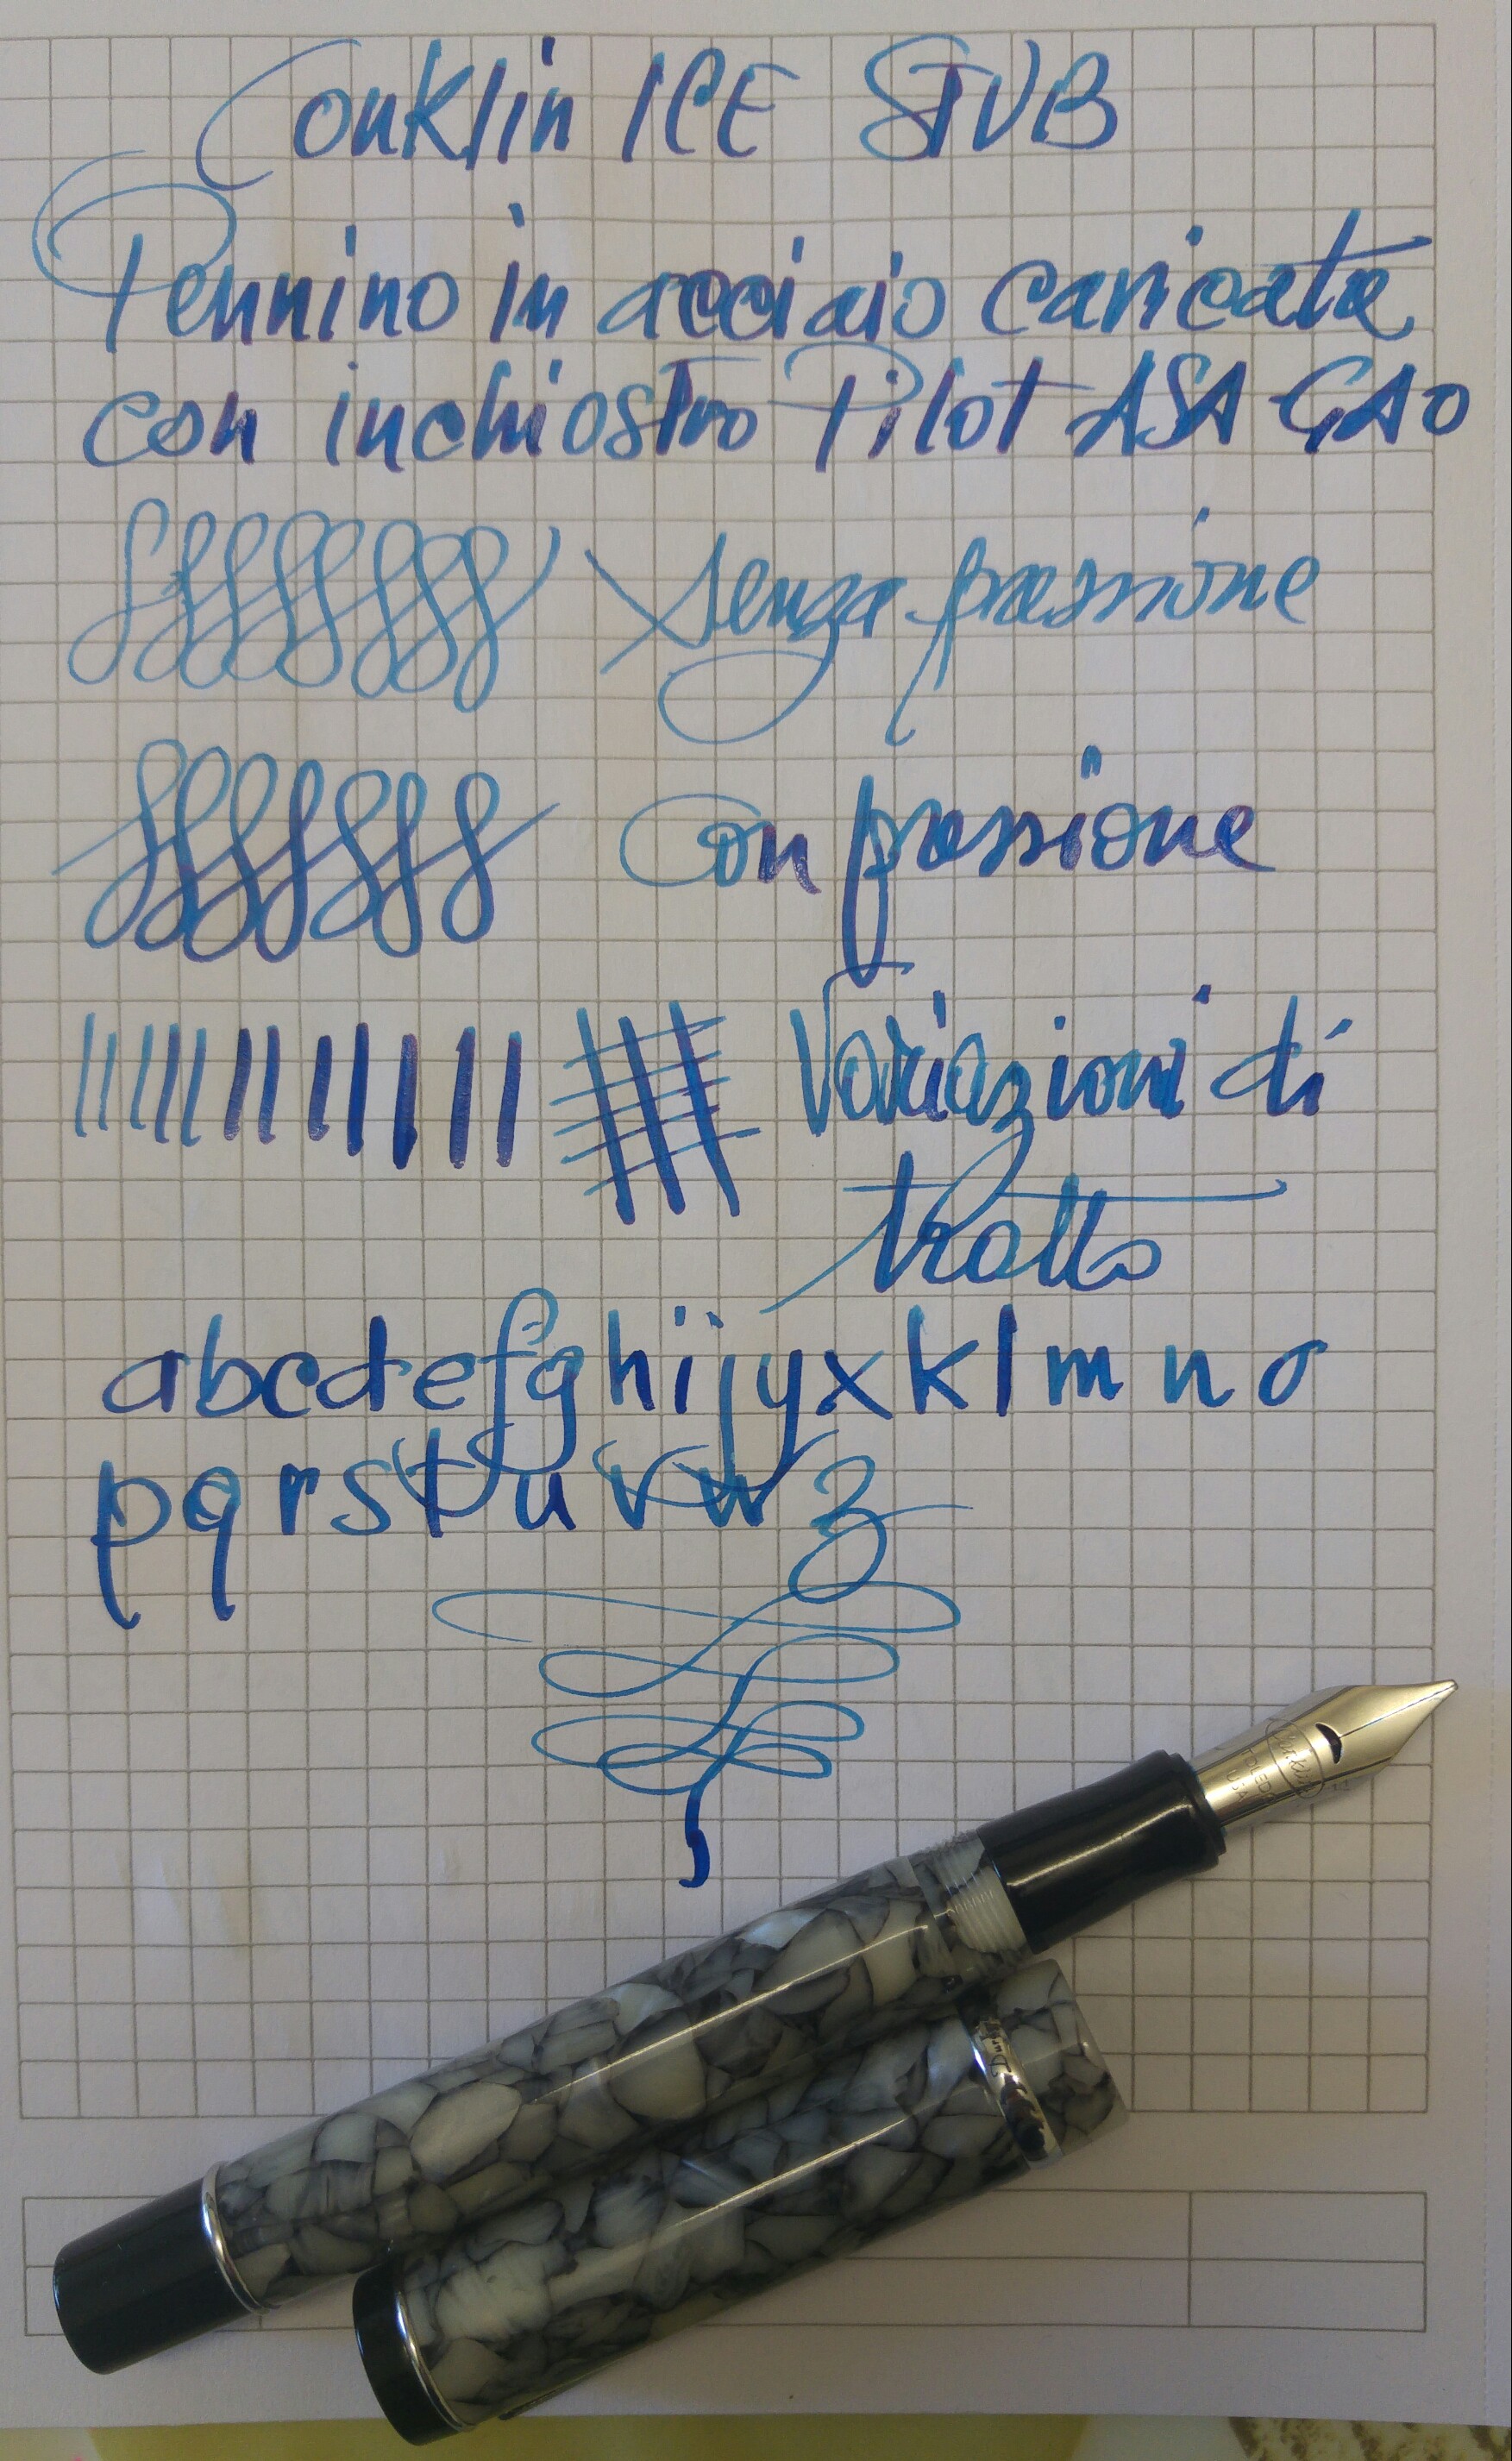 Conklin ICE STUB
Pennino in acciaio caricata
con inchiostro Pilot ASA GAO
Senza pressione
Con pressione
Variazioni di
tratto
abcdefghijyxklmno
pqrstuvwz
Conklin
TOLEDO
USA